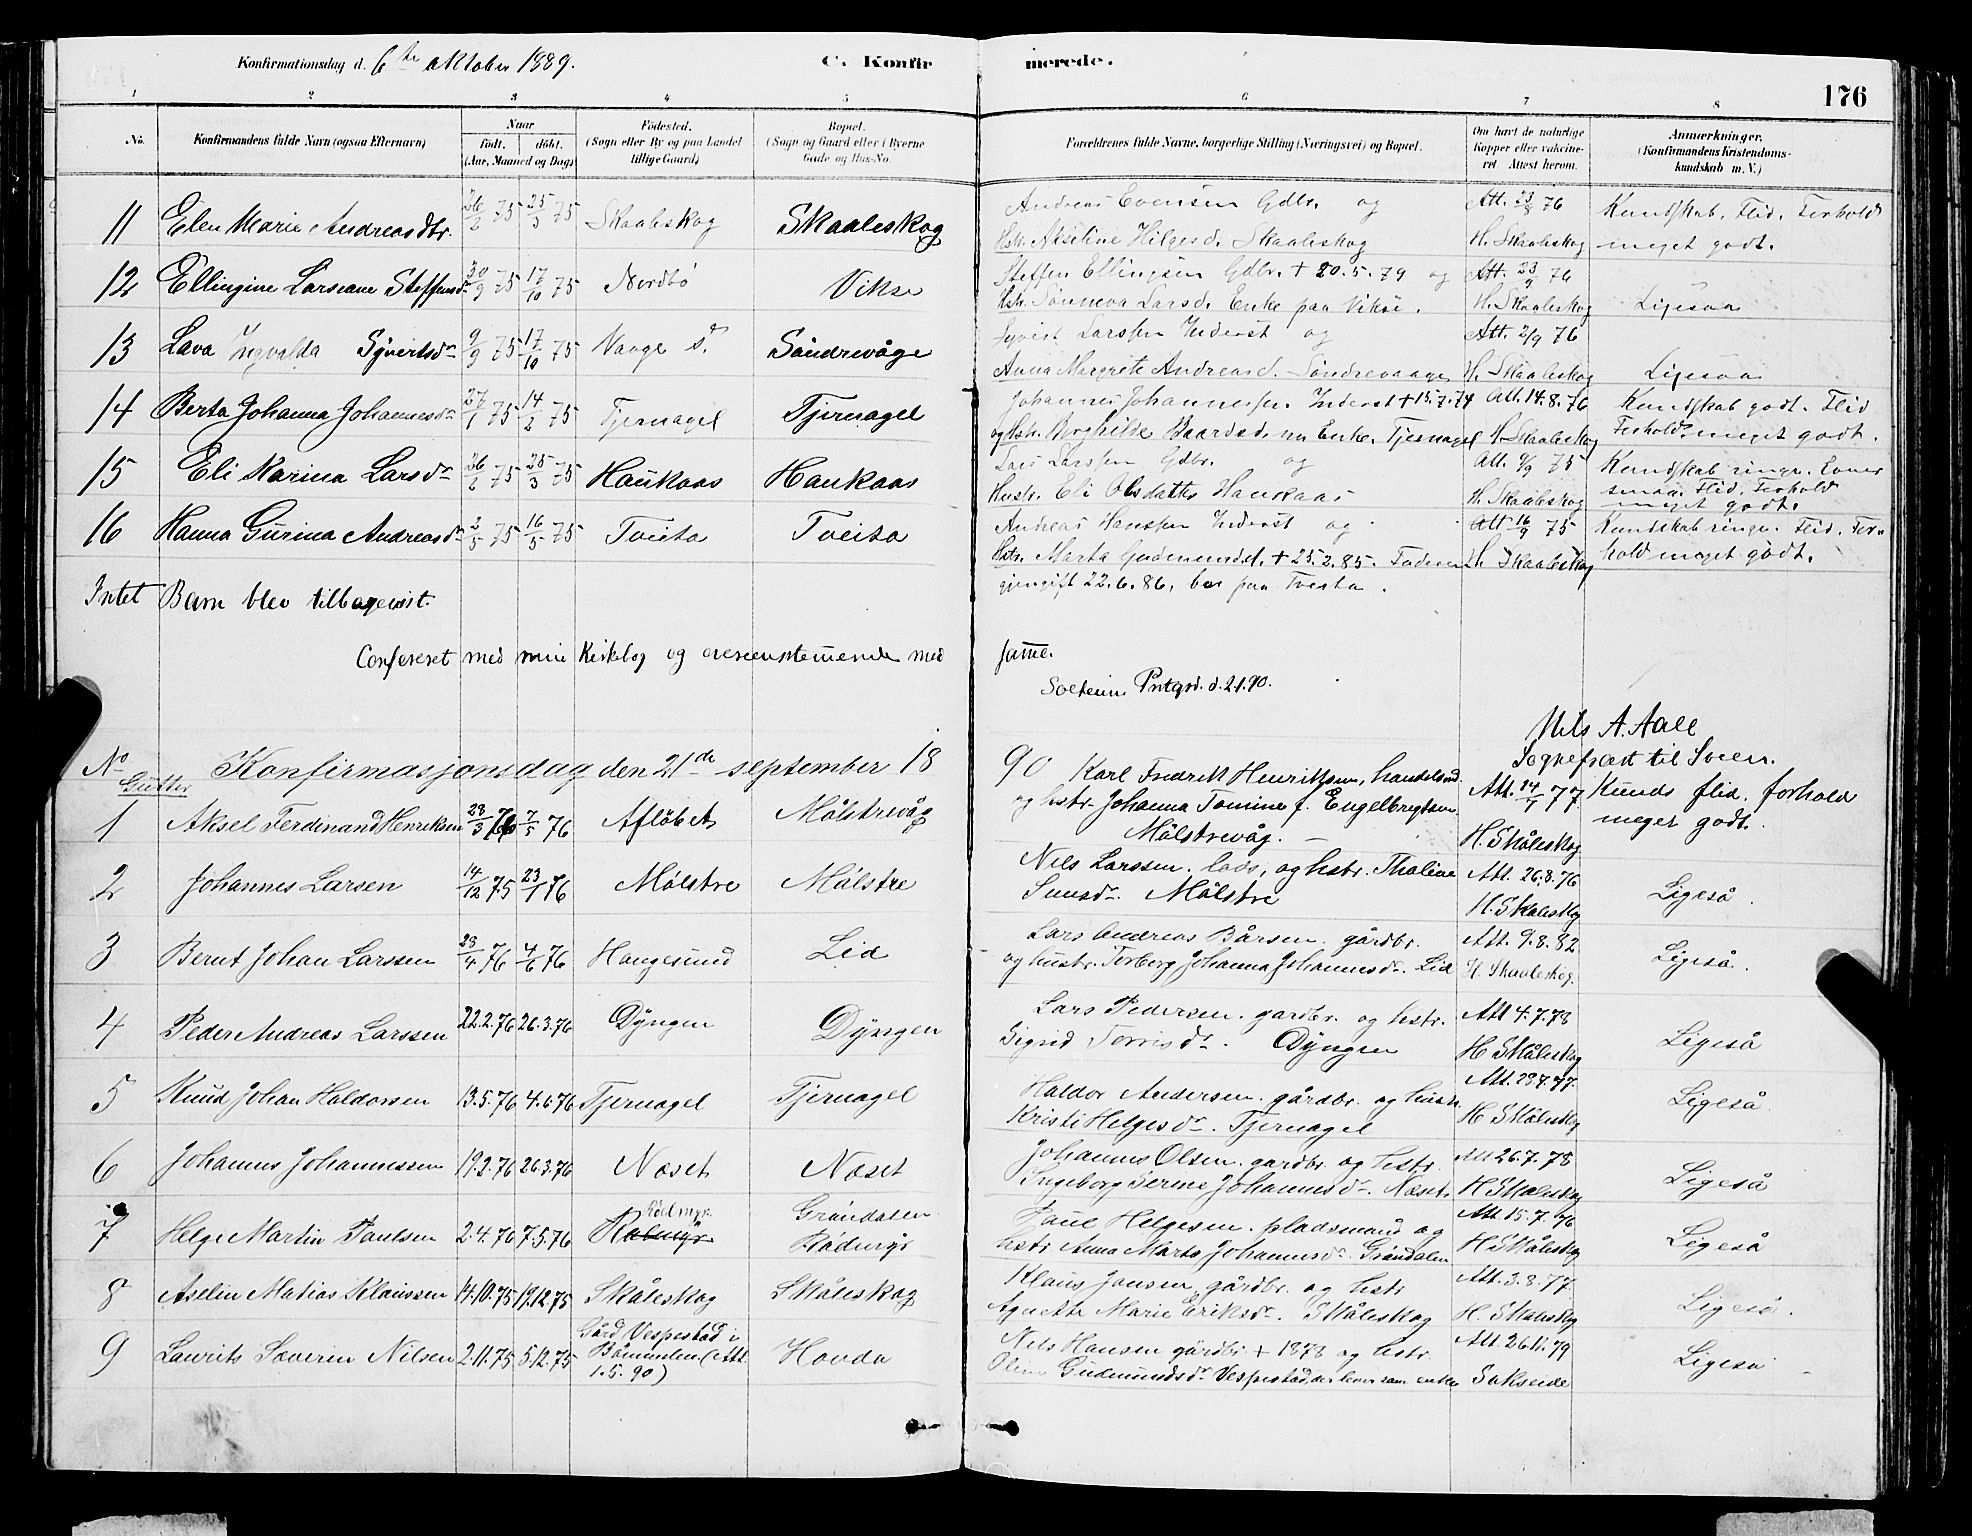 Konfirmationsdag d. 6te oktober 1889. C. Konfirmerede. 176
1 2 3 4 5 6 7 8
No. Konfirmandens fulde Navn (ogsaa Efternavn) Naar födt. döbt. (Aar, Maaned og Dag) Födested. (Sogn eller By og paa Landet tillige Gaard) Bopæl. (Sogn og Gaard eller i Byerne Gade og Hus-No. Forældrenes fulde Navne, borgerlige Stilling (Næringsvei) og Bopæl. Om havt de naturlige Kopper eller vaccineret Attest herom. Anmærkninger, (Konfirmandens Kristendomskundskab m. V.)
11 Elen Marie Andreasdtr. 26/2 75 25/3 75 Skaaleskog Skaaleskog Andreas Evensen Gdbr. og Att. 23/8 76 Kundskab, Flid, Forhold
Hstr. Akseline Hilgesd. Skaaleskog H. Skaaleskog meget godt.
12 Ellingine Larseane Steffensd. 30/9 75 17/10 75 Nordbö Vikse Steffen Ellingsen Gdbr. + 20.5.79 og Att. 23/9 76
Hstr. Sönneva Larsd. Enke paa Vikse. H. Skaaleskog Ligesaa
13 Lava Ingvalda Syvertsdr 9/9 75 17/10 75 Vaage S. Söndrevåge Syvert Larssen Inderst og Att. 2/9 76
Anna Margrete Andreasd. Söndrevaage H. Skaaleskog Ligesaa
14 Berta Johanna Johannesdr 27/1 75 14/2 75 Tjernagel Tjernagel Johannes Johannessen Inderst + 15.7.74 Att. 14.8.76 Kundskab godt. Flid
og Hstr. Borghilde Baardsd. nu Enke. Tjernagel H. Skaaleskog Forhold meget godt.
15 Eli Karina Larsdr 26/2 75 25/3 75 Haukaas Haukaas Lars Larssen Gdbr. og Att. 9/9 75 Kundskab ringe. Evner
Hustr. Eli Olsdatter Haukaas H. Skaaleskog smaa. Flid, Forhold meget godt.
16 Hanna Gurina Andreasdr 2/5 75 16/5 75 Tveita Tveita Andreas Hanssen Inderst og Att 16/9 75 Kundskab ringe. Flid. For-
Hstr. Marta Gudmundsd. + 25.2.85. Faderen H. Skaaleskog hold meget godt.
gjengift 22.6.86, bor paa Tveita.
Intet Barn blev tilbagevist.
Confereret med min Kirkebog og overensstemmende med samme.
Soeteim Prstgrd. d. 2.1.90.
Nils A. Aall
Sognepræst til Sveen.
No Gutter Konfirmasjonsdag den 21de september 1890
1 Aksel Ferdinand Henriksen 28/3 76 7/5 76 Aflöbet Mölstrevåg Karl Fredrik Henriksen, handelsmd. Att. 24/7 77 Kunds. flid. forhold
og hstr. Johanna Tomine f. Engelbregtsen meget godt.
Mölstrevåg. H. Skåleskog
2 Johannes Larsen 14/12 75 23/1 76 Mölstre Mölstre Nils Larssen, lods, og hstr. Thaline Att. 26.8.76 Ligeså.
Mölstre H. Skaleskog
3 Bernt Johan Larssen 28/4 76 4/6 76 Haugesund Lid Lars Andreas Bårsen. gårdbr. Att. 9.8.82 Ligeså.
og hustr. Torberg Johanna Johannesdr. Lid H. Skaaleskog.
4 Peder Andreas Larssen 22.2.76 26.3.76 Dyngen Dyngen Lars Pedersen. gardbr. og hstr. Att 4.7.78 Ligeså
Sigrid Torrisdr. Dyngen H Skåleskog
5 Knud Johan Haldorsen 13.5.76 4.6.76 Tjernagel Tjernagel Haldor Andersen. gårdbr. og hustr Att. 28.7.77. Ligeså.
Kristi Helgesdr. Tjernagel H Skåleskog
6 Johannes Johannessen 19.2.76 26.3.76 Næset Næset Johannes Olsen. gardbr. og hstr. Att 26.7.78 Ligeså
Ingeborg Serine Johannesdr. Næset. H Skaleskog
7 Helge Martin Paulsen 2.4.76 7.5.76 Rödmyr Gröndalen Rödmyr Paul Helgesen. pladsmand og Att. 15.7.76 Ligeså
hstr Anna Marta Johannesdr. Gröndalen H Skåleskog
8 Aselin Matias Klaussen 14.10.75 19.12.75 Skåleskog Skåleskog Klaus Jansen, gårdbr. og hstr Att. 3.8.77. Ligeså.
Agnethe Marie Eriksdr. Skåleskog H. Skaleskog
9 Laurits Severin Nilsen 2.11.75 5.12.75 Gård Vespestad i Bömmelen (Att. 1.5.90) Hovda Nils Hansen gårdbr + 1878 og hstr. Att. 26.11.79 Ligeså
Oline Gudmundsdr Vespestad, der lever som enke Sakseide